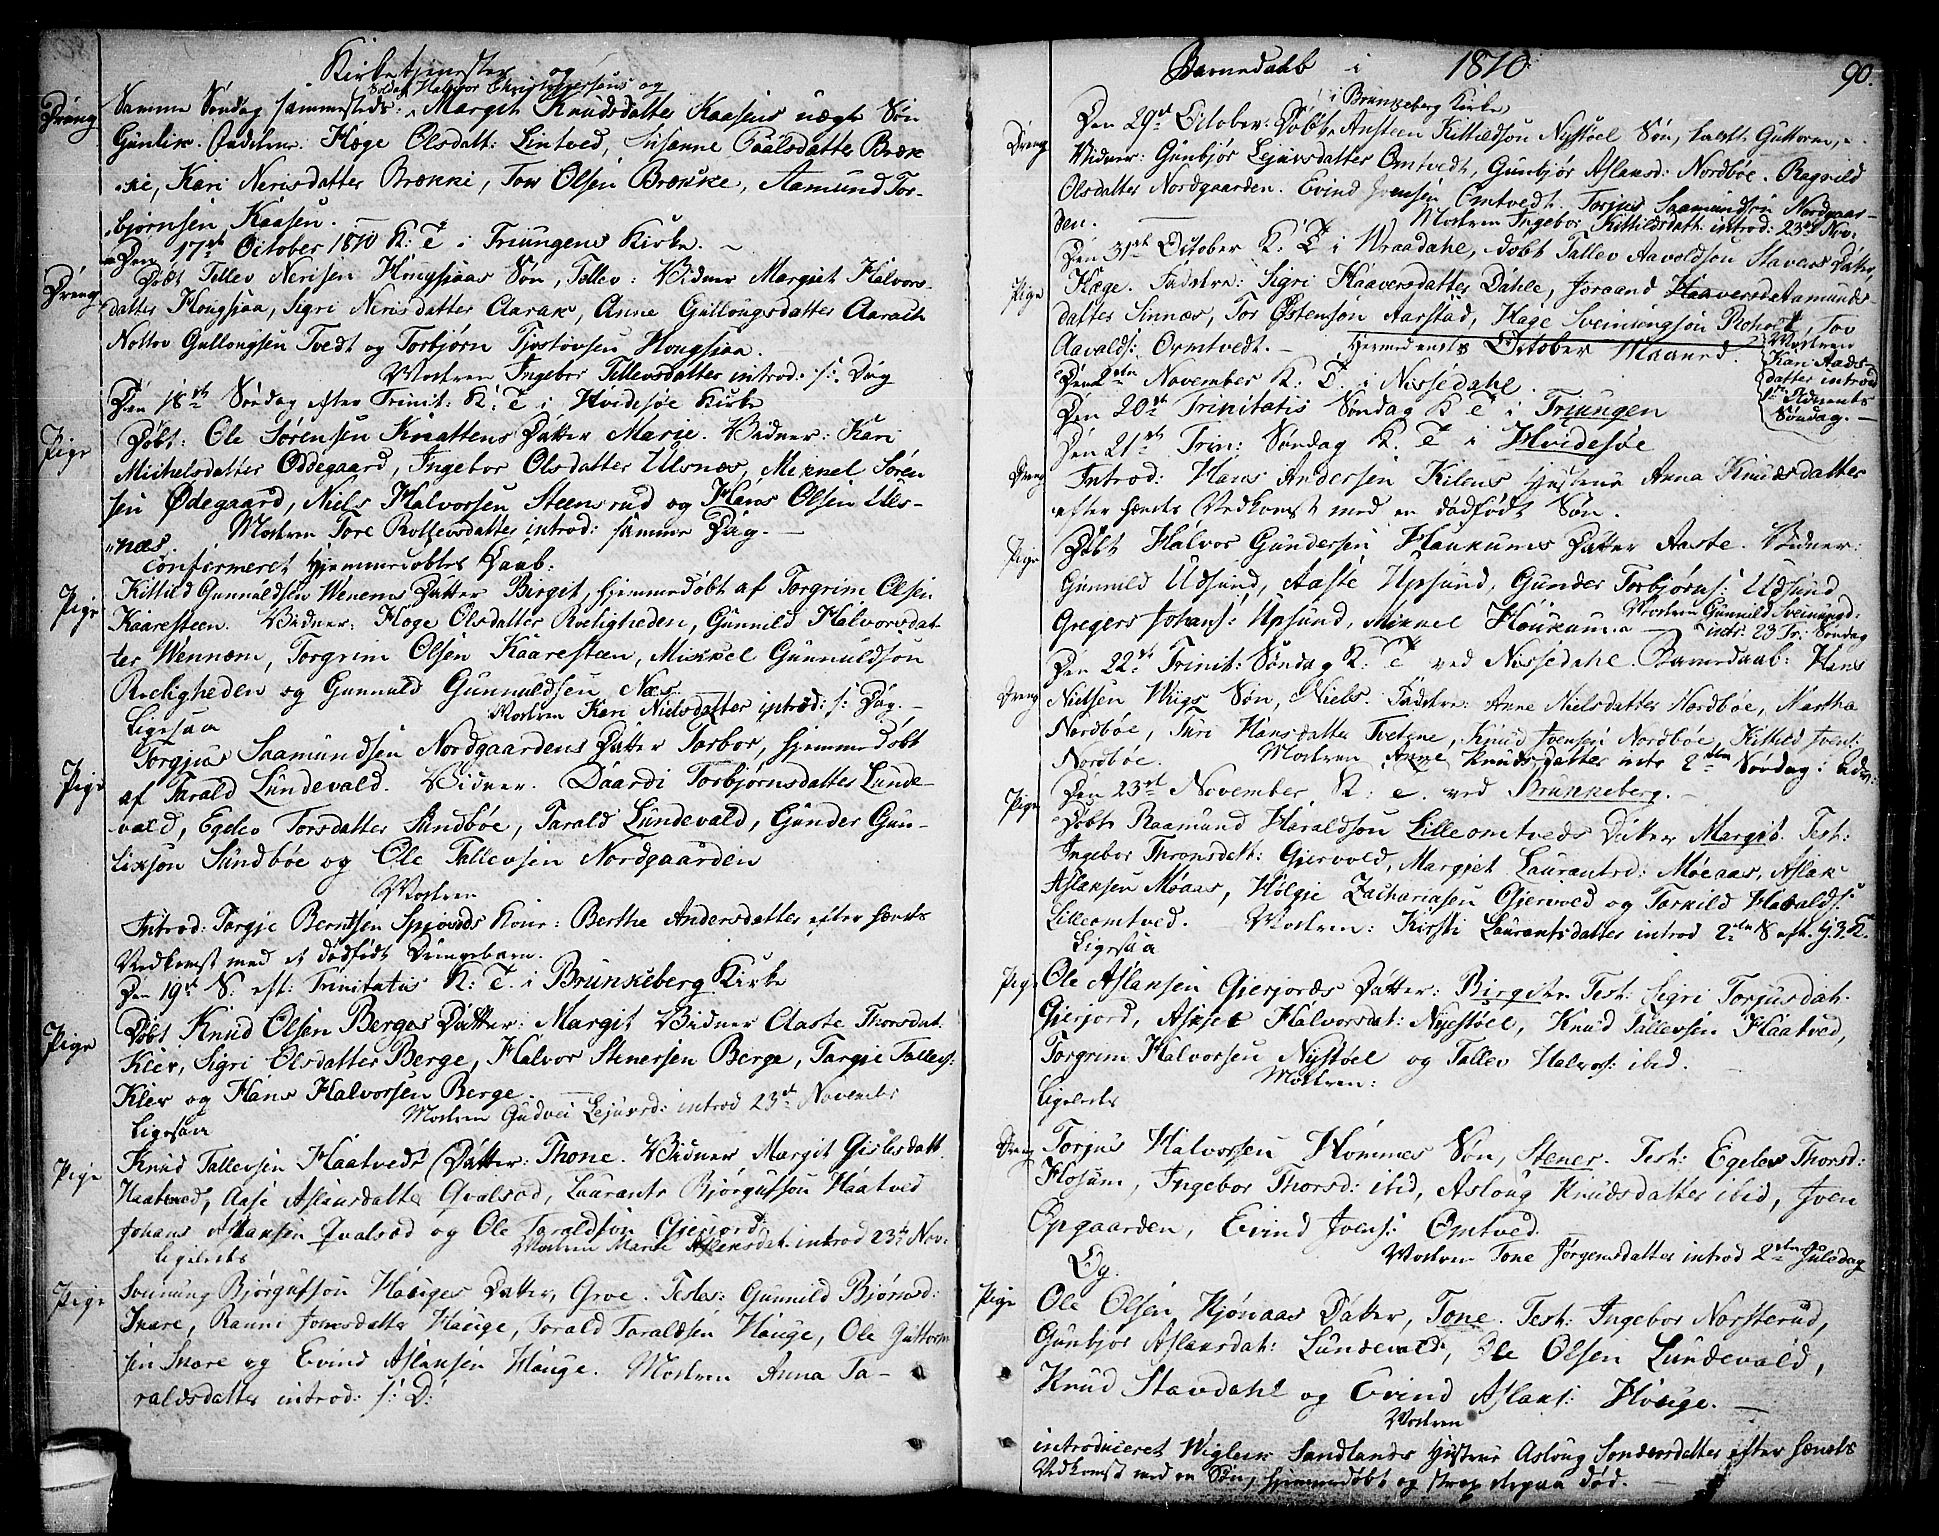 Kirketjenester og
Soldat Halvor Christophersens og
Dreng
Samme Søndag sammesteds: Margit Knudsdatter Kaasens uægte Søn
Gunlik. Faddere: Hæge Olsdatt: Lintved, Susanne Paalsdatter Bræk
ke, Kari Nerisdatter Brække, Tov Olsen Brække, Aamund Tor-
bjørnsen Kaasen.
Den 17de October 1810 K: T i Triungens Kirke.
Dreng
Døbt Tellev Nerisen Hougsjaas Søn, Tellev: Vidner Margit Halvors-
datter Hougsjaa, Sigri Nerisdatter Aarak, Anne Gullougsdatter Aarak
Nottov Gullougsen Tvedt og Torbjørn Tjostovsen Hougsjaa.
Modren Ingebor Tellevsdatter introd: s: Dag
Den 18de Søndag efter Trinit: K: T i Hvidesøe Kirke
Pige
Døbt: Ole Sørensen Knattens Datter Marie. Vidner: Kari
Michelsdatter Ødegaard, Ingebor Olsdatter Ulsnæs, Mikkel Søren
sen Ødegaard, Niels Halvorsen Steensrud og Hans Olsen Uls-
næs. Modren Tore Rollevsdatter introd: samme Dag.
Confirmeret Hjemmedøbtes Daab:
Pige
Kittild Gunnuldsen Wenems Datter Birgit, hjemmedøbt af Torgrim Olsen
Kaaresteen. Vidner: Hæge Olsdatter Roeligheden, Gunnild Halvorsdat
ter Wennem, Torgrim Olsen Kaaresteen, Mikkel Gunnuldson
Roeligheden og Gunnuld Gunnuldsen Næs
Modren Kari Nielsdatter introd: s: Dag.
Ligesaa
Pige
Torgjus Saamundsen Nordgaardens Datter Torbor, hjemmedøbt
af Tarald Lundevald. Vidner. Daardi Torbjørnsdatter Lunde-
vald, Egelev Torsdatter Sundbøe, Tarald Lundevald, Gunder Gun-
lixson Sundbøe og Ole Tallevsen Nordgaarden
Modren
Introd: Torgje Berntsen Spjosods Kone: Berthe Andersdatter efter hendes
Nedkomst med et dødfødt Drengebarn.
Den 19de S: eft: Trinitatis K: T. i Brunkeberg Kirke
Pige
Døbt Knud Olsen Berges Datter: Margit Vidner Aaste Thorsdat.
Klev, Sigri Olsdatter Berge, Halvor Stenersen Berge, Targie Tallevs:
Klev og Hans Halvorsen Berge.
Modren Gudvei Lejuvsd: introd 23de November
Ligesaa
Pige
Knud Tallevsen Haatveds Datter: Thone. Vidner Margit Gislesdatt.
Haatved, Aase Aslaksdatter Qvalsod, Laurants Bjørgufson Haatved
Johans Aslaksen Qvalsod og Ole Taraldson Gjersjord:
Modren Marte Aslaksdat: introd 23de Nov:
Ligeledes
Pige
Sonnung Bjørgufson Hauges Datter, Groe. Testes: Gunnild Bjørnsd:
Snare, Ranni Jonsdatter Hauge, Torald Taraldsen Hauge, Ole Guttorm
sen Snare og Evind Aslaksen Hauge. Modren Anna Ta-
raldsdatter introd: s: D:
Barnedaab i 1810
90.
i Brunkeberg Kirke
Dreng
Den 29de October: Døbt Ansteen Kittildson Nystøel Søn, kaldt Guttorm,
Vidner: Gunbjør Lejuvsdatter Omtvedt, Gunbjør Aslaksd: Nordbøe. Ragnild
Olsdatter Nordgaarden. Evind Jvensen Omtvedt. Torjus Saamundsen Nordgaar-
den. Modren Ingebor Kittildsdatt: introd: 23de Nov:
Den 31te October K: T i Wraadahl, døbt Tallev Aavoldson Stavens Datter,
Pige
Hæge. Faddere: Sigri Haaversdatter Dahle, Joraand Aamunds
datter Sinnæs, Tor Østenson Aarstad, Hage Sveinungson Roholt, Tov
Aavalds: Omtvedt. Hermed endes October Maaned.
Modren
Kari Aads
datter introd
1ste Advents
Søndag.
Den 2den November K: T. i Nissedahl.
Den 20de Trinitatis Søndag K T i Triungen
Den 21de Trin: Søndag K. T i Hvidesøe
Dreng
Introd: Hans Andersen Kilens Hustrue Anna Knudsdatter
efter hendes Nedkomst med en dødfødt Søn.
Pige
Døbt Halvor Gundersen Haukums Datter Aaste. Vidner:
Gunnild Udsund, Aaste Upsund, Gunder Torbjørns: Udsund
Gregers Johans: Upsund, Mikkel Haukum.
Modren Gunnild Sveinungd:
intr: 23 Tr: Søndag
Den 22de Trinit: Søndag K: T ved Nissedahl. Barnedaab: Hans
Dreng
Nielsen Wiigs Søn, Niels. Faddere: Anne Nielsdatter Nordbøe, Martha
Nordbøe, Turi Hansdatter Tvetene, Knud Jvensen Nordbøe, Kittild Jvens:
Nordbøe. Modren Anne Knudsdatter intr 2den Søndag i Adv:
Den 23de November K: T. ved Brunkeberg.
Pige
Døbt Raamund Haraldson Lilleomtveds Datter Margit. Test:
Ingebor Thronsdatt: Gjervold, Margjet Laurantsd: Moeaas, Aslak
Aslaksen Moaas, Hølgje Zachariasen Gjervold og Torkild Haralds:
Lilleomtved. Modren: Kirsti Laurantsdatter introd 2den S eft. H. 3. K.
Ligesaa
Pige
Ole Aslaksen Gjersjords Datter: Birgit. Test: Sigri Torjusdat:
Gjersjord, Asket Halvorsdat: Nystøel, Knud Tallevsen Haatved,
Torgrim Halvorsen Nystøel og Tallev Halvors: ibid.
Modren:
Ligeledes
Dreng
Torjus Halvorsen Hommes Søn, Stener. Test: Egelev Thorsd:
Flosum, Ingebor Thorsd: ibid, Aslaug Knudsdatter ibid, Jven
Opgaarden, Evind Jvens: Omtved.
Modren Tone Jørgensdatter introd 2den Juledag
Og.
Pige
Ole Olsen Kjønaas Datter, Tone. Test: Ingebor Norsterud,
Gunbjør Aslaksdat: Lundevald, Ole Olsen Lundevald,
Knud Stavdahl og Evind Aslaks: Hauge.
Modren
introduceret Wiglek Sandlands Hustrue Aslaug Sondresdatter efter hendes
Nedkomst med en Søn, hjemmedøbt og strax derpaa død.